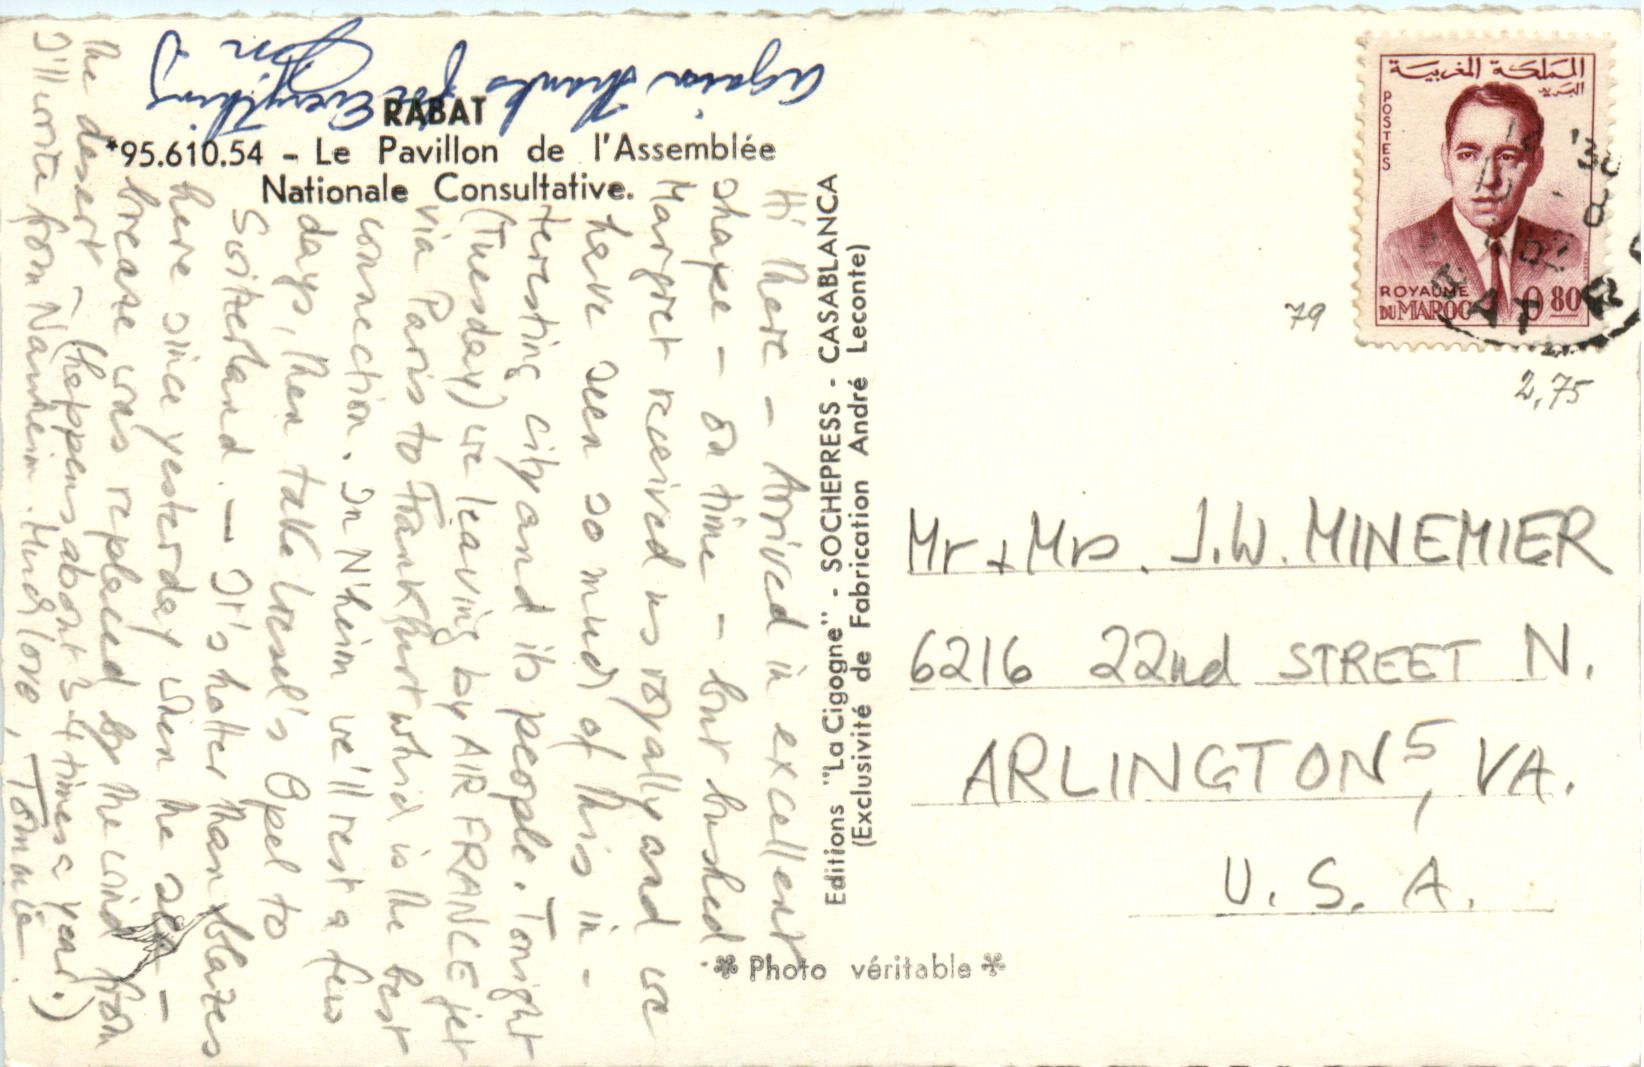 RABAT
*95.610.54 – Le Pavillon de l'Assemblée
Nationale Consultative.
Hi there – Arrived in excellent
shape – on time – but bushed.
Margret received us royally and we
have seen so much of this in-
teresting city and its people. Tonight
(Tuesday) we leaving by AIR FRANCE jet
via Paris to Frankfurt which is the best
connection. In N'heim we'll rest a few
days, then take Liesel's Opel to
Switzerland. – It's hotter than blazes
here since yesterday when the sea –
brease was replaced by the wind from
the desert – (happens about 3-4 times a year.)
I'll write from Nauheim. Much love, Tommie.
Again thanks for Everything
Jon
Editions "La Cigogne" - SOCHEPRESS - CASABLANCA
(Exclusivité de Fabrication André Leconte)
* Photo véritable *
المملكة المغربية
البريد
POSTES
ROYAUME
DU MAROC
0.80
RABAT R
79
2,75
Mr + Mrs. J.W. MINEMIER
6216 22nd STREET N.
ARLINGTON 5, VA.
U. S. A.